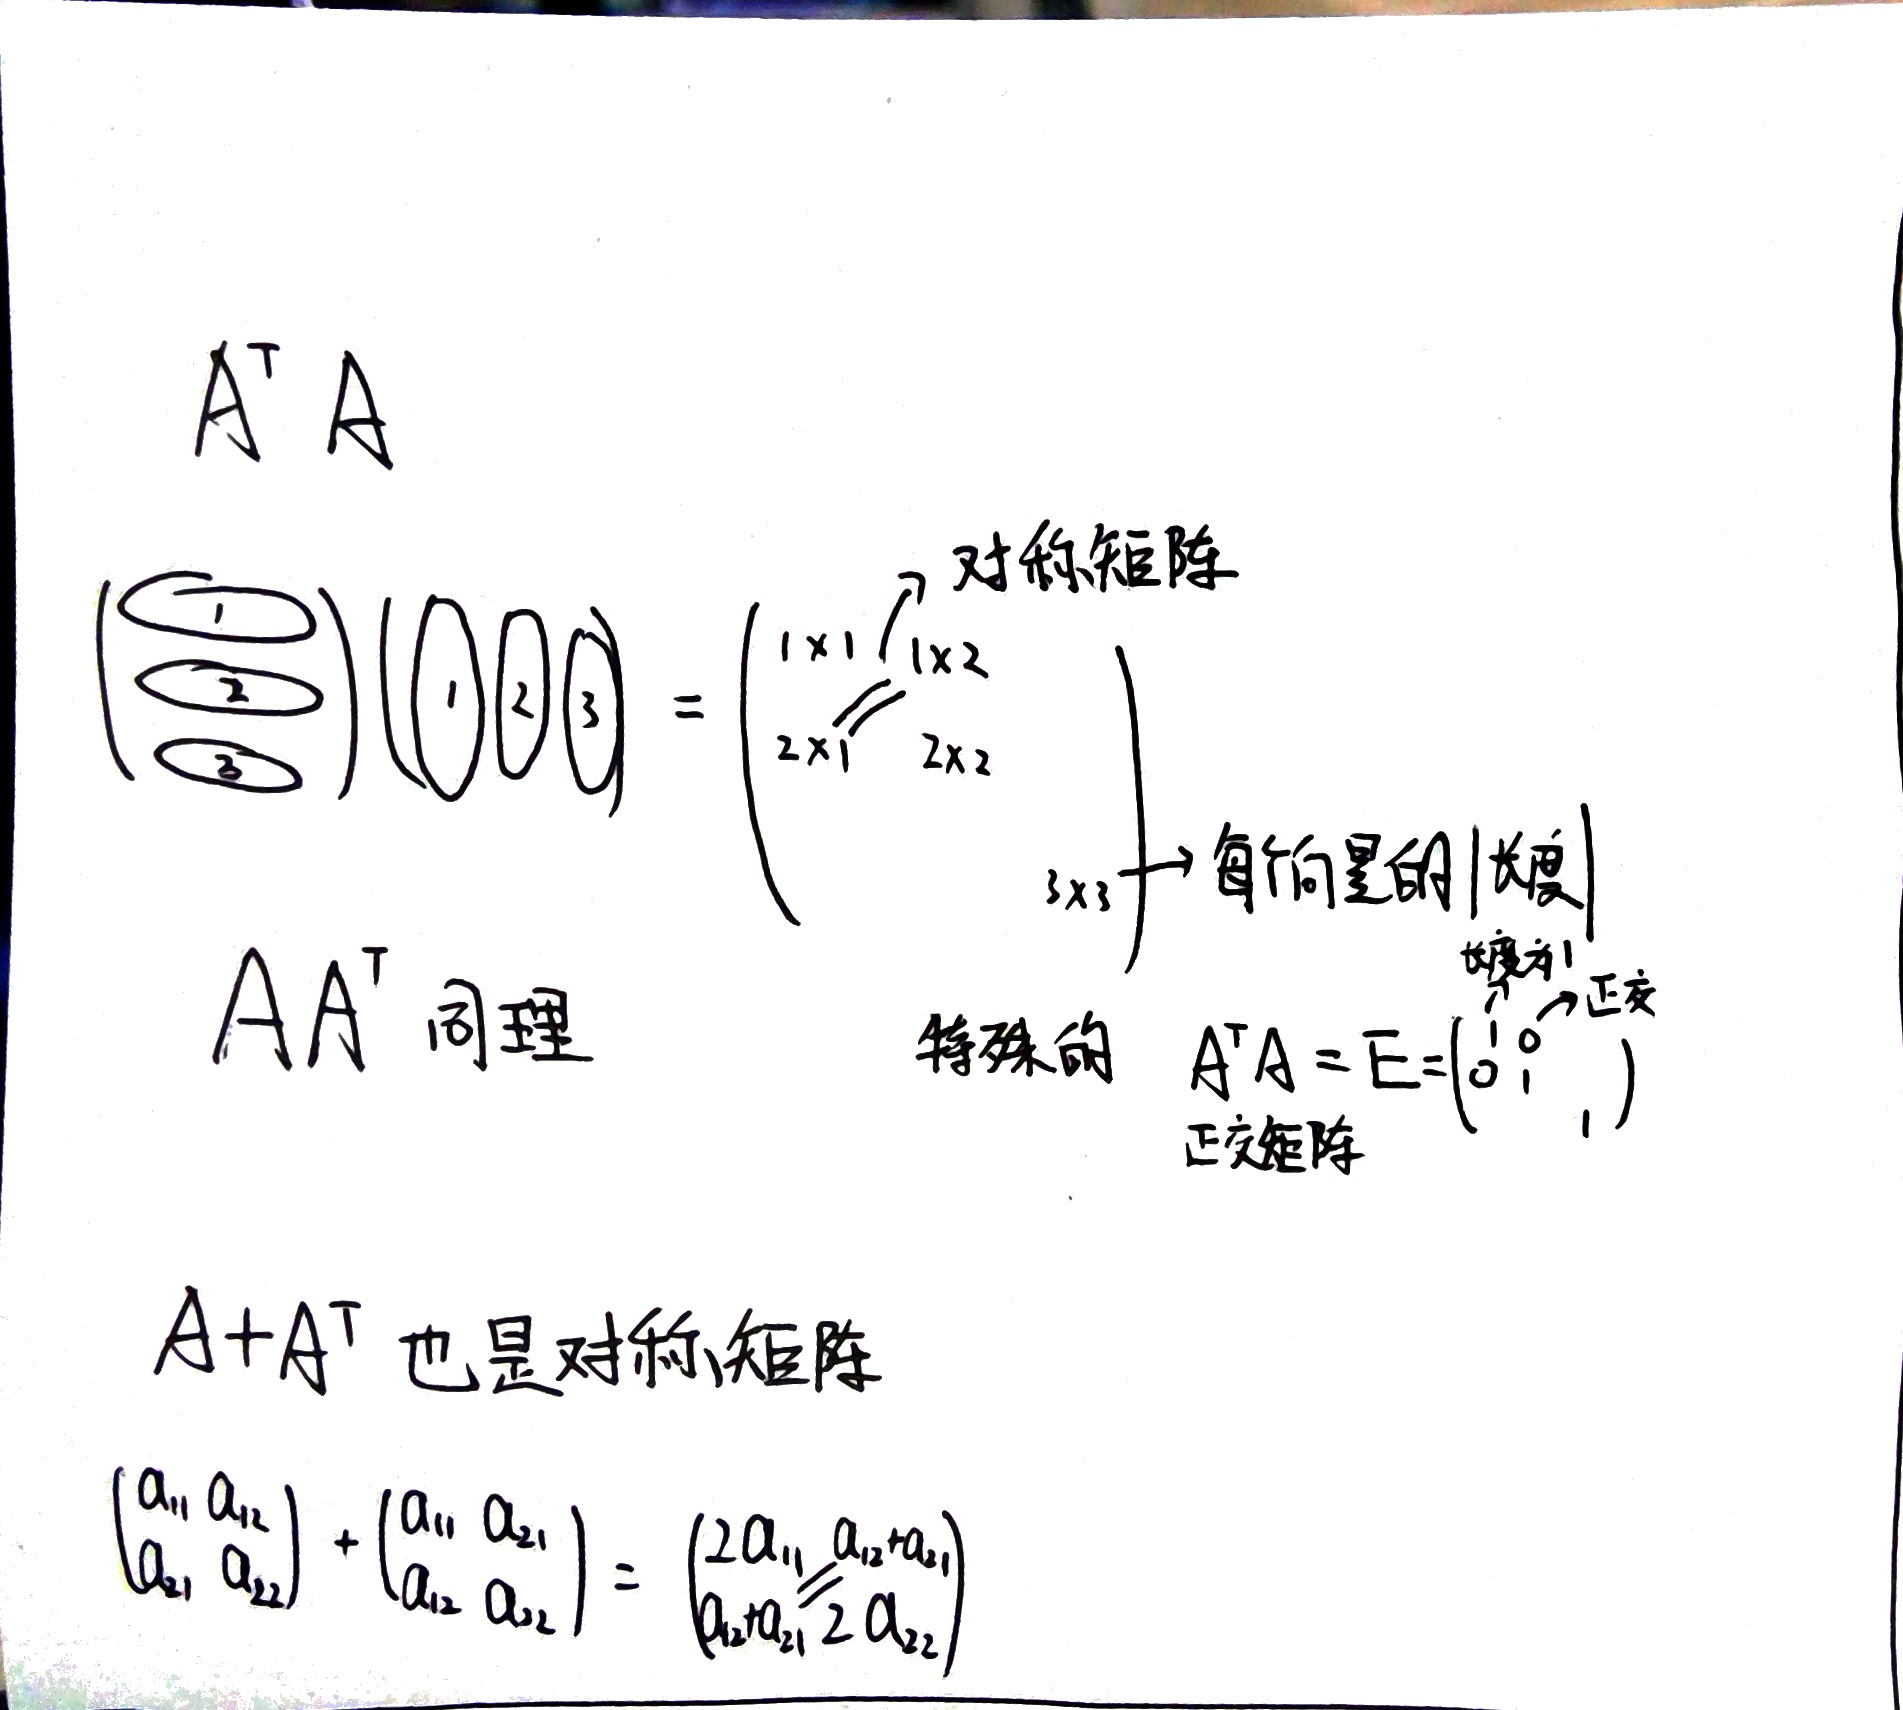 Aᵀ A
对称矩阵
(1 2 3) (1 2 3) = (1×1 1×2
2×1 2×2
3×3) → 每个向量的|长度|
AAᵀ 同理
长度为1
正交
特殊的 AᵀA = E = (1 0
0 1
1)
正交矩阵
A+Aᵀ 也是对称矩阵
(a₁₁ a₁₂ + (a₁₁ a₂₁ = (2a₁₁ a₁₂+a₂₁
a₂₁ a₂₂) a₁₂ a₂₂) a₁₂+a₂₁ 2a₂₂)